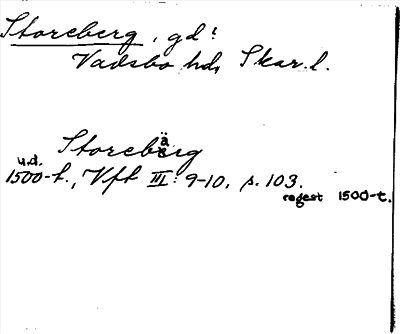 Storeberg, gd:
Vadsbo hd, Skar. l.
Storebärg
u.d.
1500-t., Vft III: 9-10, s. 103.
regest 1500-t.